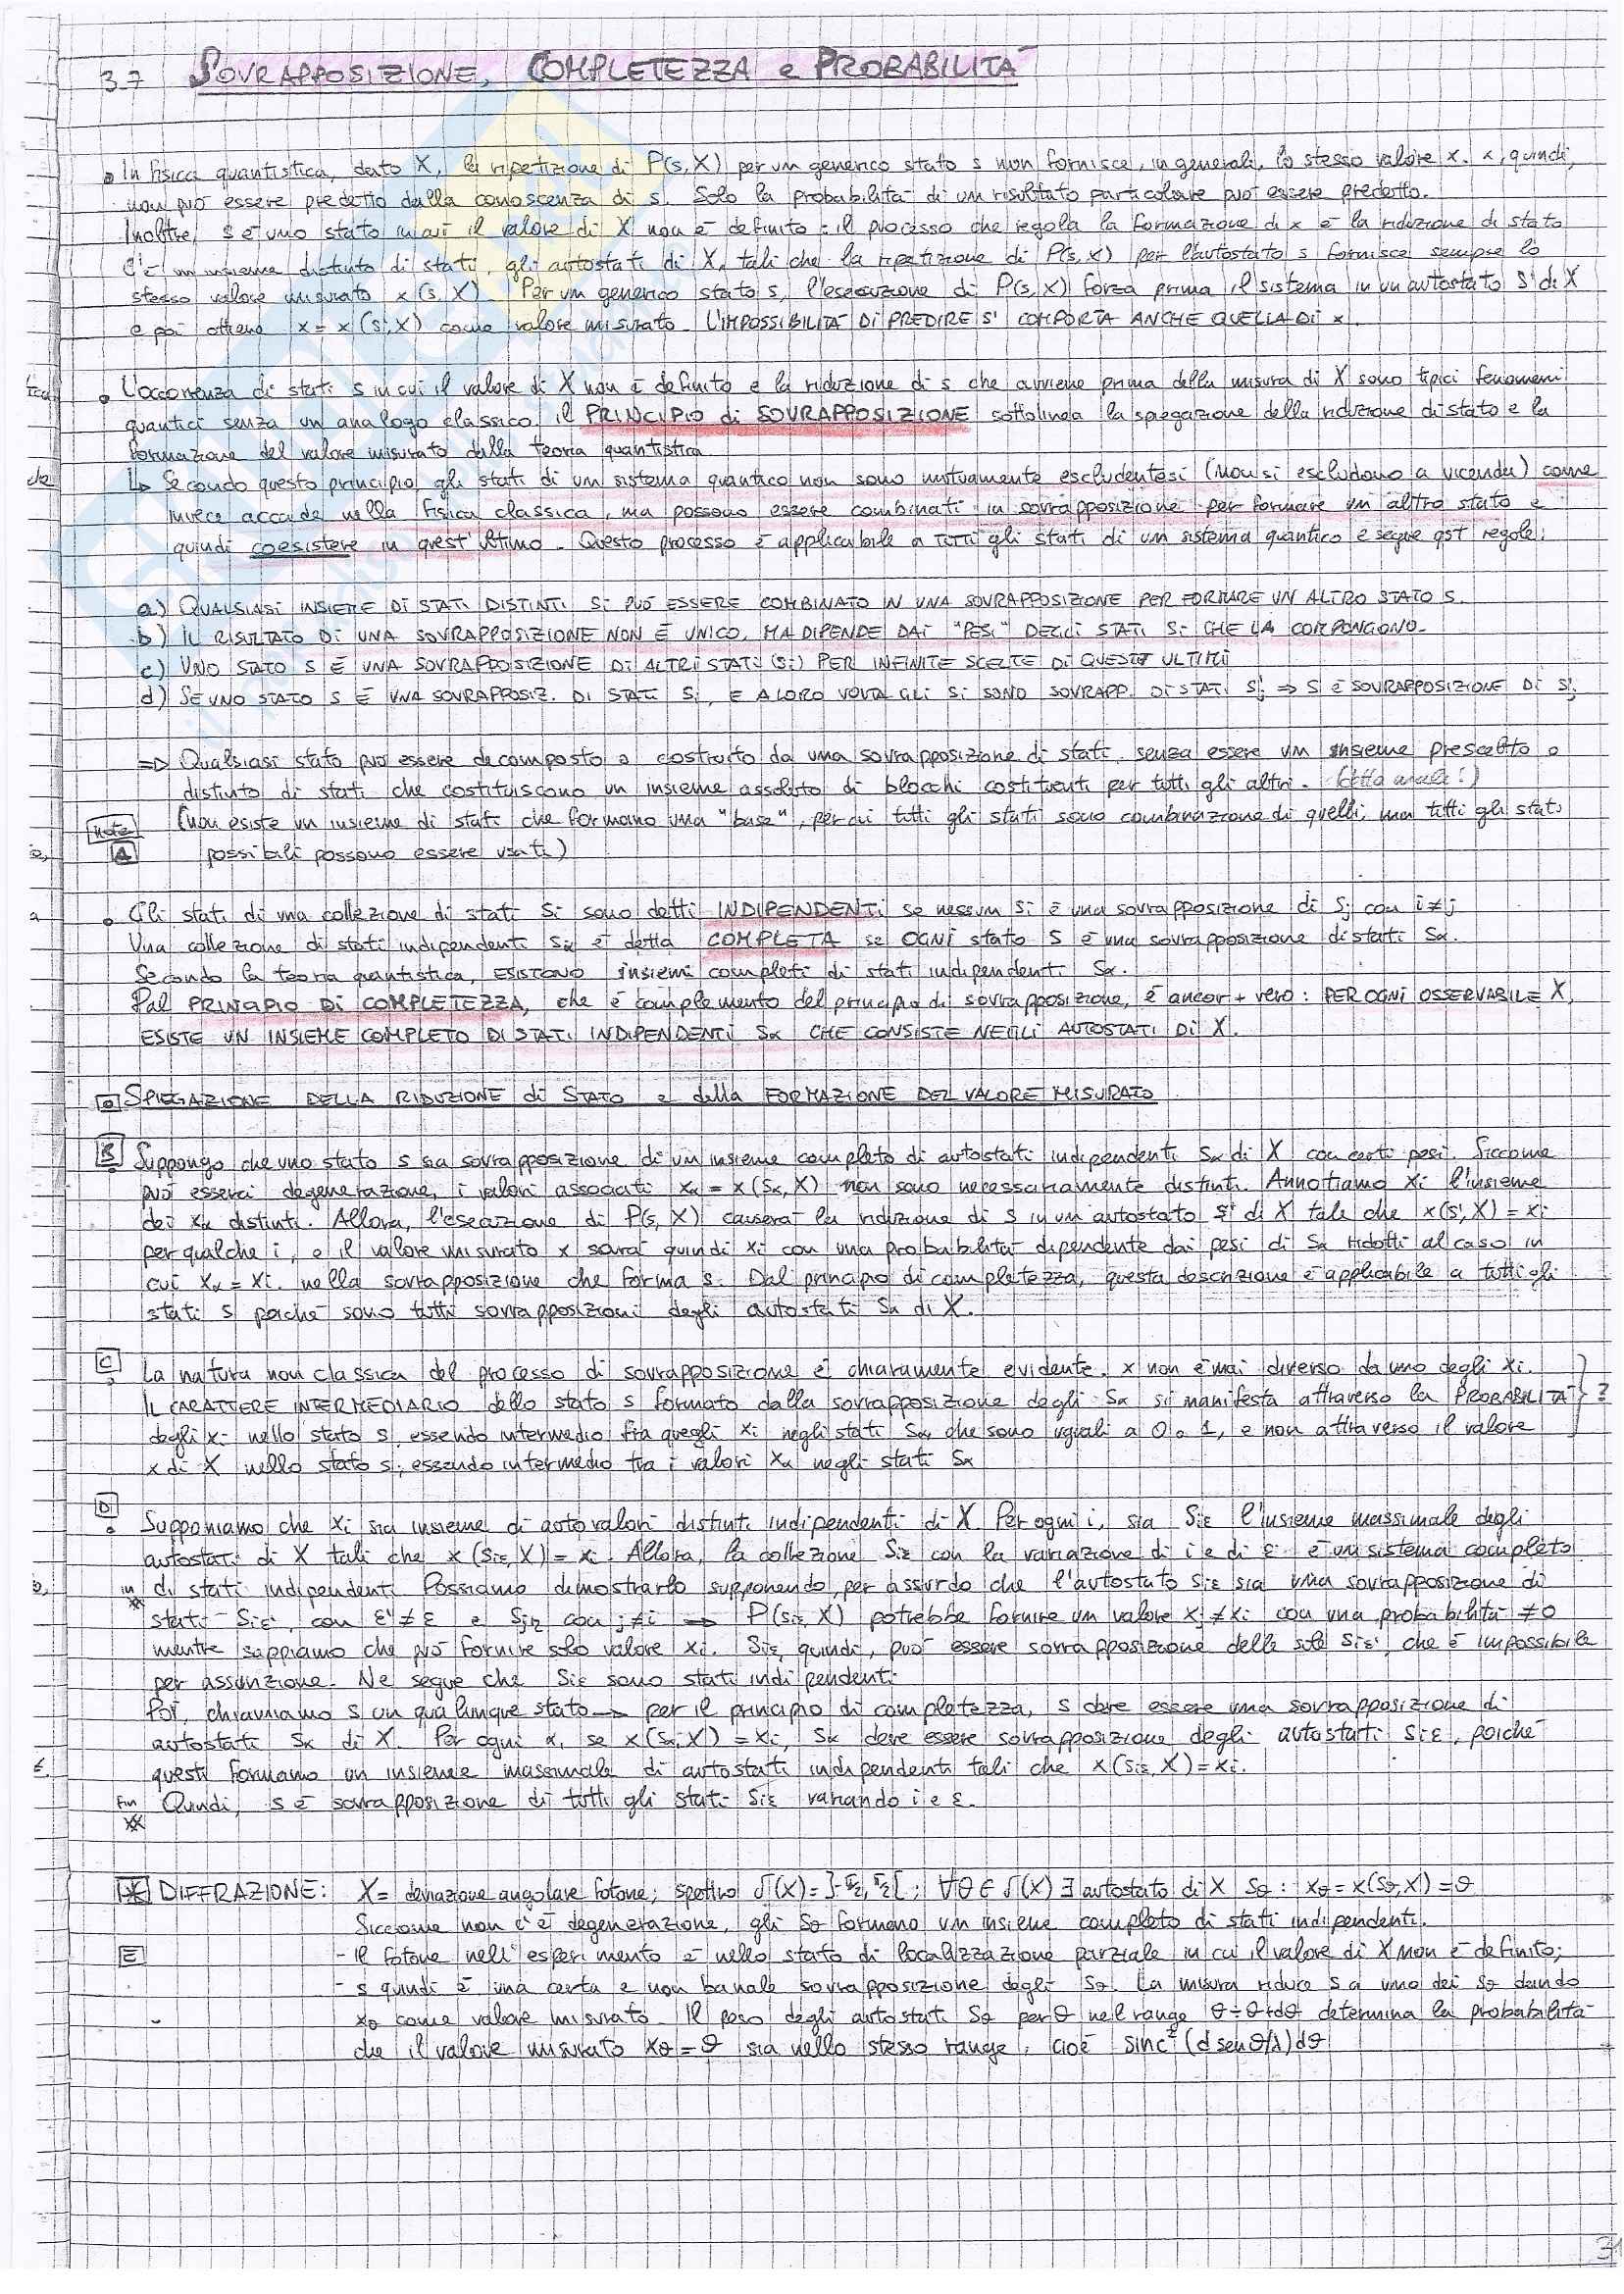 3.7 SOVRAPPOSIZIONE, COMPLETEZZA e PROBABILITÀ
• In fisica quantistica, dato X, la ripetizione di P(s,X) per un generico stato s non fornisce, in generale, lo stesso valore x. x, quindi,
non può essere predetto dalla conoscenza di s. Solo la probabilità di un risultato particolare può essere predetto.
Inoltre, s è uno stato in cui il valore di X non è definito: il processo che regola la formazione di x è la riduzione di stato
C'è un insieme distinto di stati, gli autostati di X, tali che la ripetizione di P(s,x) per l'autostato s fornisce sempre lo
stesso valore misurato x(s,X). Per un generico stato s, l'esecuzione di P(s,X) forza prima il sistema in un autostato s' di X
e poi ottiene x = x(s',X) come valore misurato. L'IMPOSSIBILITÀ DI PREDIRE S' COMPORTA ANCHE QUELLA DI x.
• L'occorrenza di stati s in cui il valore di X non è definito e la riduzione di s che avviene prima della misura di X sono tipici fenomeni
quantici senza un analogo classico. Il PRINCIPIO di SOVRAPPOSIZIONE sottolinea la spiegazione della riduzione di stato e la
formazione del valore misurato dalla teoria quantistica
↳ Secondo questo principio, gli stati di un sistema quantico non sono mutuamente escludentesi (non si escludono a vicenda) come
invece accade nella fisica classica, ma possono essere combinati in sovrapposizione per formare un altro stato e
quindi coesistere in quest'ultimo. Questo processo è applicabile a TUTTI gli stati di un sistema quantico e segue qst regole:
a) QUALSIASI INSIEME DI STATI DISTINTI SI PUÒ ESSERE COMBINATO IN UNA SOVRAPPOSIZIONE PER FORMARE UN ALTRO STATO S.
b) IL RISULTATO DI UNA SOVRAPPOSIZIONE NON È UNICO, MA DIPENDE DAI "PESI" DEGLI STATI Si CHE LA COMPONGONO.
c) UNO STATO S È UNA SOVRAPPOSIZIONE DI ALTRI STATI (Si) PER INFINITE SCELTE DI QUESTI ULTIMI
d) SE UNO STATO S È UNA SOVRAPPOSIZ. DI STATI Si, E A LORO VOLTA GLI Si SONO SOVRAPP. DI STATI S'j ⇒ S È SOVRAPPOSIZIONE DI S'j
⇒ Qualsiasi stato può essere decomposto o costruito da una sovrapposizione di stati, senza essere un insieme prescelto o
distinto di stati che costituiscono un insieme assoluto di blocchi costituenti per tutti gli altri.
(non esiste un insieme di stati che formano una "base", per cui tutti gli stati sono combinazione di quelli, ma tutti gli stati
note
A possibili possono essere usati)
• Gli stati di una collezione di stati Si sono detti INDIPENDENTI se nessun Si è una sovrapposizione di Sj con i≠j
Una collezione di stati indipendenti Sα è detta COMPLETA se OGNI stato S è una sovrapposizione di stati Sα.
Secondo la teoria quantistica, ESISTONO insiemi completi di stati indipendenti Sα.
Dal PRINCIPIO DI COMPLETEZZA, che è complemento del principio di sovrapposizione, è ancor + vero: PER OGNI OSSERVABILE X,
ESISTE UN INSIEME COMPLETO DI STATI INDIPENDENTI Sα CHE CONSISTE NEGLI AUTOSTATI DI X.
SPIEGAZIONE DELLA RIDUZIONE di STATO e della FORMAZIONE DEL VALORE MISURATO
B Suppongo che uno stato s sia sovrapposizione di un insieme completo di autostati indipendenti Sα di X con certi pesi. Siccome
può esserci degenerazione, i valori associati xα = x(Sα,X) non sono necessariamente distinti. Annotiamo xi l'insieme
dei xα distinti. Allora, l'esecuzione di P(s,X) causerà la riduzione di s in un autostato s' di X tale che x(s',X) = xi
per qualche i, e il valore misurato x sarà quindi xi con una probabilità dipendente dai pesi di Sα ridotti al caso in
cui xα = xi nella sovrapposizione che forma s. Dal principio di completezza, questa descrizione è applicabile a tutti gli
stati s poiché sono tutti sovrapposizioni degli autostati Sα di X.
C La natura non classica del processo di sovrapposizione è chiaramente evidente. x non è mai diverso da uno degli xi.
IL CARATTERE INTERMEDIARIO dello stato s formato dalla sovrapposizione degli Sα si manifesta attraverso la PROBABILITÀ ?
degli xi nello stato s, essendo intermedio fra quegli xi negli stati Sα, che sono uguali a 0 o 1, e non attraverso il valore
x di X nello stato s, essendo intermedio tra i valori xα negli stati Sα
D Supponiamo che xi sia insieme di autovalori distinti indipendenti di X. Per ogni i, sia Siε l'insieme massimale degli
autostati di X tali che x(Siε,X) = xi. Allora, la collezione Siε con la variazione di i e di ε è un sistema completo
di stati indipendenti. Possiamo dimostrarlo supponendo, per assurdo che l'autostato Siε sia una sovrapposizione di
stati Siε', con ε'≠ε e Sjη con j≠i → P(Siε,X) potrebbe fornire un valore xj≠xi con una probabilità ≠0
mentre sappiamo che può fornire solo valore xi. Siε, quindi, può essere sovrapposizione delle sole Siε', che è impossibile
per assunzione. Ne segue che Siε sono stati indipendenti.
Poi, chiamiamo s un qualunque stato → per il principio di completezza, s deve essere una sovrapposizione di
autostati Sα di X. Per ogni α, se x(Sα,X) = xi, Sα deve essere sovrapposizione degli autostati Siε, poiché
questi formano un insieme massimale di autostati indipendenti tali che x(Siε,X) = xi.
Quindi, s è sovrapposizione di tutti gli stati Siε variando i e ε.
DIFFRAZIONE: X = deviazione angolare fotone; spettro σ(X) = ]-π/2, π/2[ ; ∀θ ∈ σ(X) ∃ autostato di X Sθ : xθ = x(Sθ,X) = θ
Siccome non c'è degenerazione, gli Sθ formano un insieme completo di stati indipendenti.
E - il fotone nell'esperimento è nello stato di localizzazione parziale in cui il valore di X non è definito;
- s quindi è una certa e non banale sovrapposizione degli Sθ. La misura riduce s a uno dei Sθ dando
xθ come valore misurato. Il peso degli autostati Sθ per θ nel range θ÷θ+dθ determina la probabilità
che il valore misurato xθ = θ sia nello stesso range, cioè sinc²(d senθ/λ)dθ
31